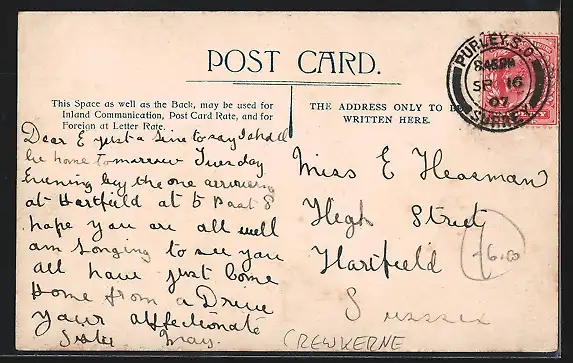 POST CARD.
This Space as well as the Back, may be used for
Inland Communication, Post Card Rate, and for
Foreign at Letter Rate.
THE ADDRESS ONLY TO BE
WRITTEN HERE.
PURLEY.S.O.
SP 16
07
SURREY
Dear E just a line to say I shall
be home tomorrow Tuesday
Evening by the one arriving
at Hartfield at 5 Past 8
hope you are all well
am longing to see you
all have just Come
Home from a Drive
your affectionate
Sister May.
Miss E Heasman
High Street
Hartfield
Sussex
£6.00
CREWKERNE